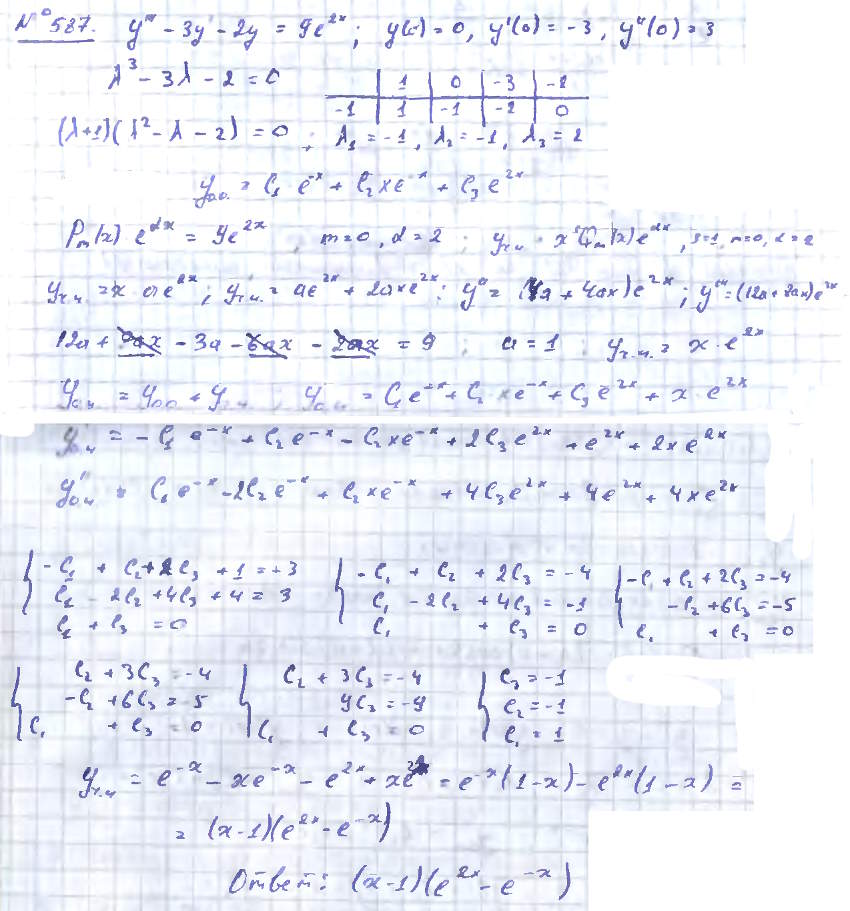 №587. y''' - 3y' - 2y = 9e^{2x}; y(0) = 0, y'(0) = -3, y''(0) = 3
λ^3 - 3λ - 2 = 0
1 0 -3 -2
-1 1 -1 -2 0
(λ+1)(λ^2 - λ - 2) = 0; λ_1 = -1, λ_2 = -1, λ_3 = 2
y_{o.o.} = C_1 e^{-x} + C_2 x e^{-x} + C_3 e^{2x}
P_m(x) e^{αx} = 9e^{2x}, m=0, α=2; y_{ч.н.} = x^s Q_m(x) e^{αx}, s=1, m=0, α=2
y_{ч.н.} = x · a e^{2x}; y'_{ч.н.} = a e^{2x} + 2ax e^{2x}; y'' = (4a + 4ax) e^{2x}; y''' = (12a + 8ax) e^{2x}
12a + 8ax - 3a - 6ax - 2ax = 9; a = 1; y_{ч.н.} = x · e^{2x}
y_{о.н.} = y_{o.o.} + y_{ч.н.}; y_{о.н.} = C_1 e^{-x} + C_2 x e^{-x} + C_3 e^{2x} + x · e^{2x}
y'_{о.н.} = -C_1 e^{-x} + C_2 e^{-x} - C_2 x e^{-x} + 2C_3 e^{2x} + e^{2x} + 2x e^{2x}
y''_{о.н.} = C_1 e^{-x} - 2C_2 e^{-x} + C_2 x e^{-x} + 4C_3 e^{2x} + 4e^{2x} + 4x e^{2x}
{ -C_1 + C_2 + 2C_3 + 1 = -3 { -C_1 + C_2 + 2C_3 = -4 { -C_1 + C_2 + 2C_3 = -4
C_1 - 2C_2 + 4C_3 + 4 = 3 C_1 - 2C_2 + 4C_3 = -1 -C_2 + 6C_3 = -5
C_1 + C_3 = 0 C_1 + C_3 = 0 C_1 + C_3 = 0
{ C_2 + 3C_3 = -4 { C_2 + 3C_3 = -4 { C_3 = -1
-C_2 + 6C_3 = 5 9C_3 = -9 C_2 = -1
C_1 + C_3 = 0 C_1 + C_3 = 0 C_1 = 1
y_{ч.н} = e^{-x} - x e^{-x} - e^{2x} + x e^{2x} = e^{-x}(1-x) - e^{2x}(1-x) =
= (x-1)(e^{2x} - e^{-x})
Ответ: (x-1)(e^{2x} - e^{-x})